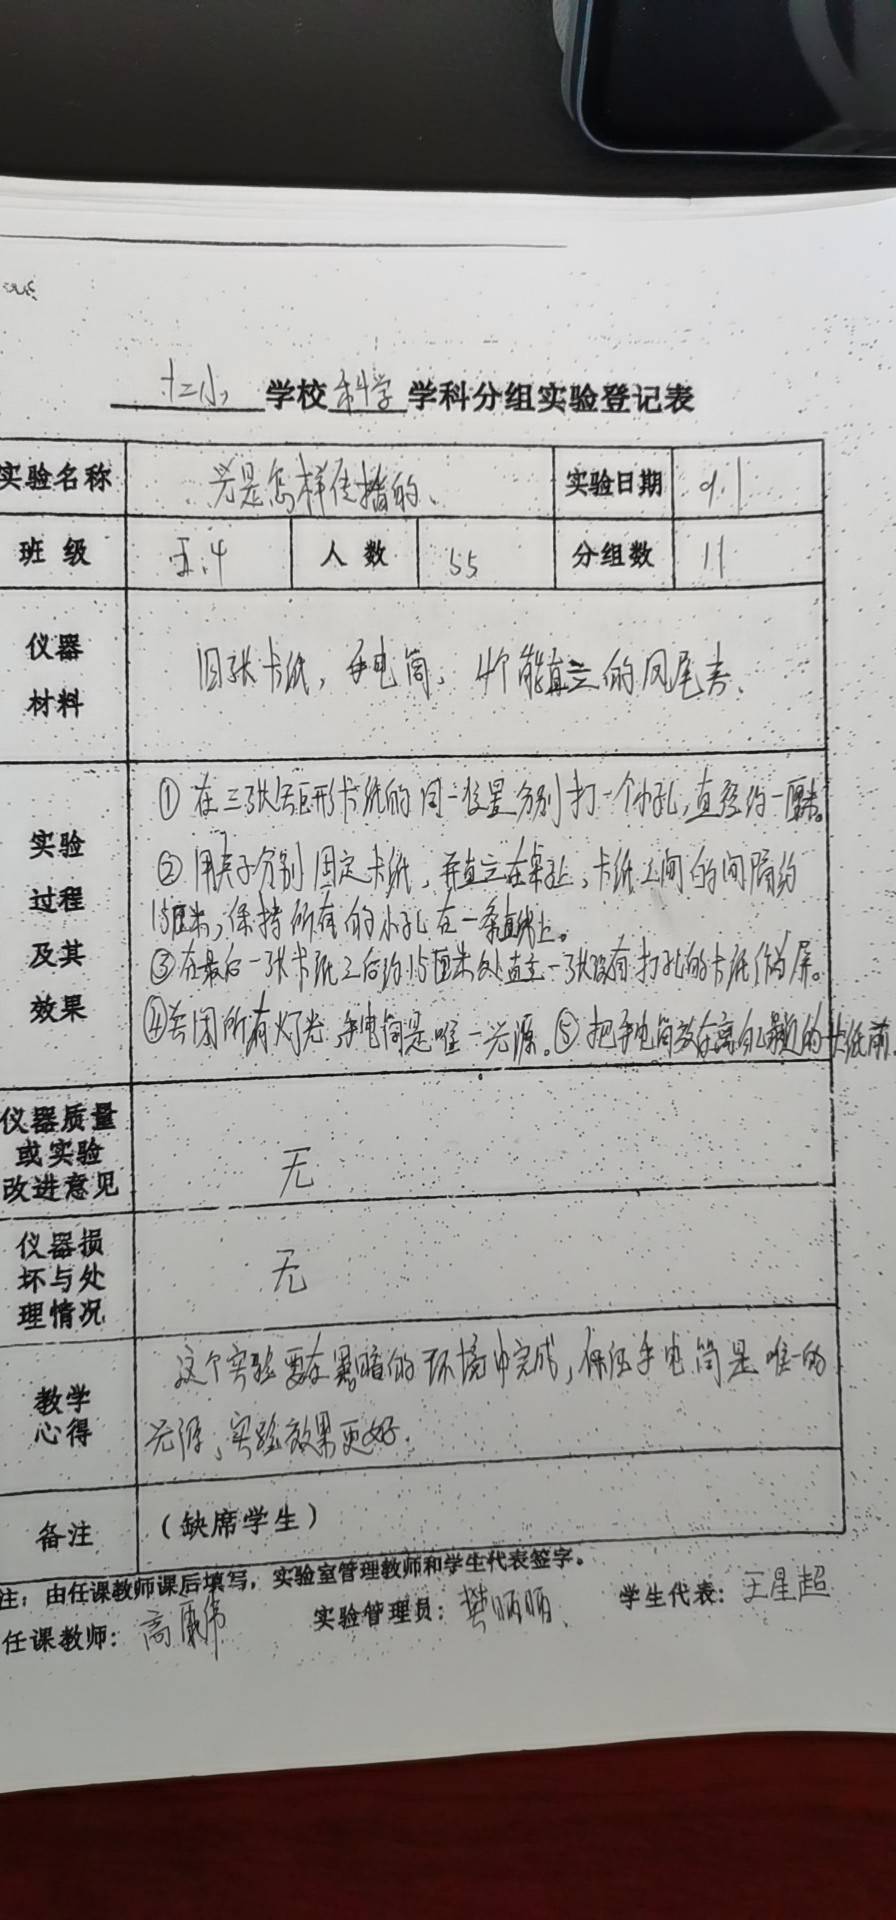 十二小 学校 科学 学科分组实验登记表
实验名称 光是怎样传播的、 实验日期 9.1
班级 五.4 人数 55 分组数 11
仪器
材料
四张卡纸，手电筒，4个能直立的凤尾夹、
实验
过程
及其
效果
①在三张矩形卡纸的同一位置分别打一个小孔，直径约一厘米。
②用夹子分别固定卡纸，并直立在桌上，卡纸之间的间隔约
15厘米，保持所有的小孔在一条直线上。
③在最后一张卡纸之后约15厘米处直立一张没有打孔的卡纸作为屏。
④关闭所有灯光，手电筒是唯一光源。⑤把手电筒放在离孔最近的卡纸前
仪器质量
或实验
改进意见
无
仪器损
坏与处
理情况
无
教学
心得
这个实验要在黑暗的环境中完成，保证手电筒是唯一的
光源，实验效果更好.
备注 （缺席学生）
注：由任课教师课后填写，实验室管理教师和学生代表签字。
任课教师：高 实验管理员：樊丽丽、 学生代表：王星超